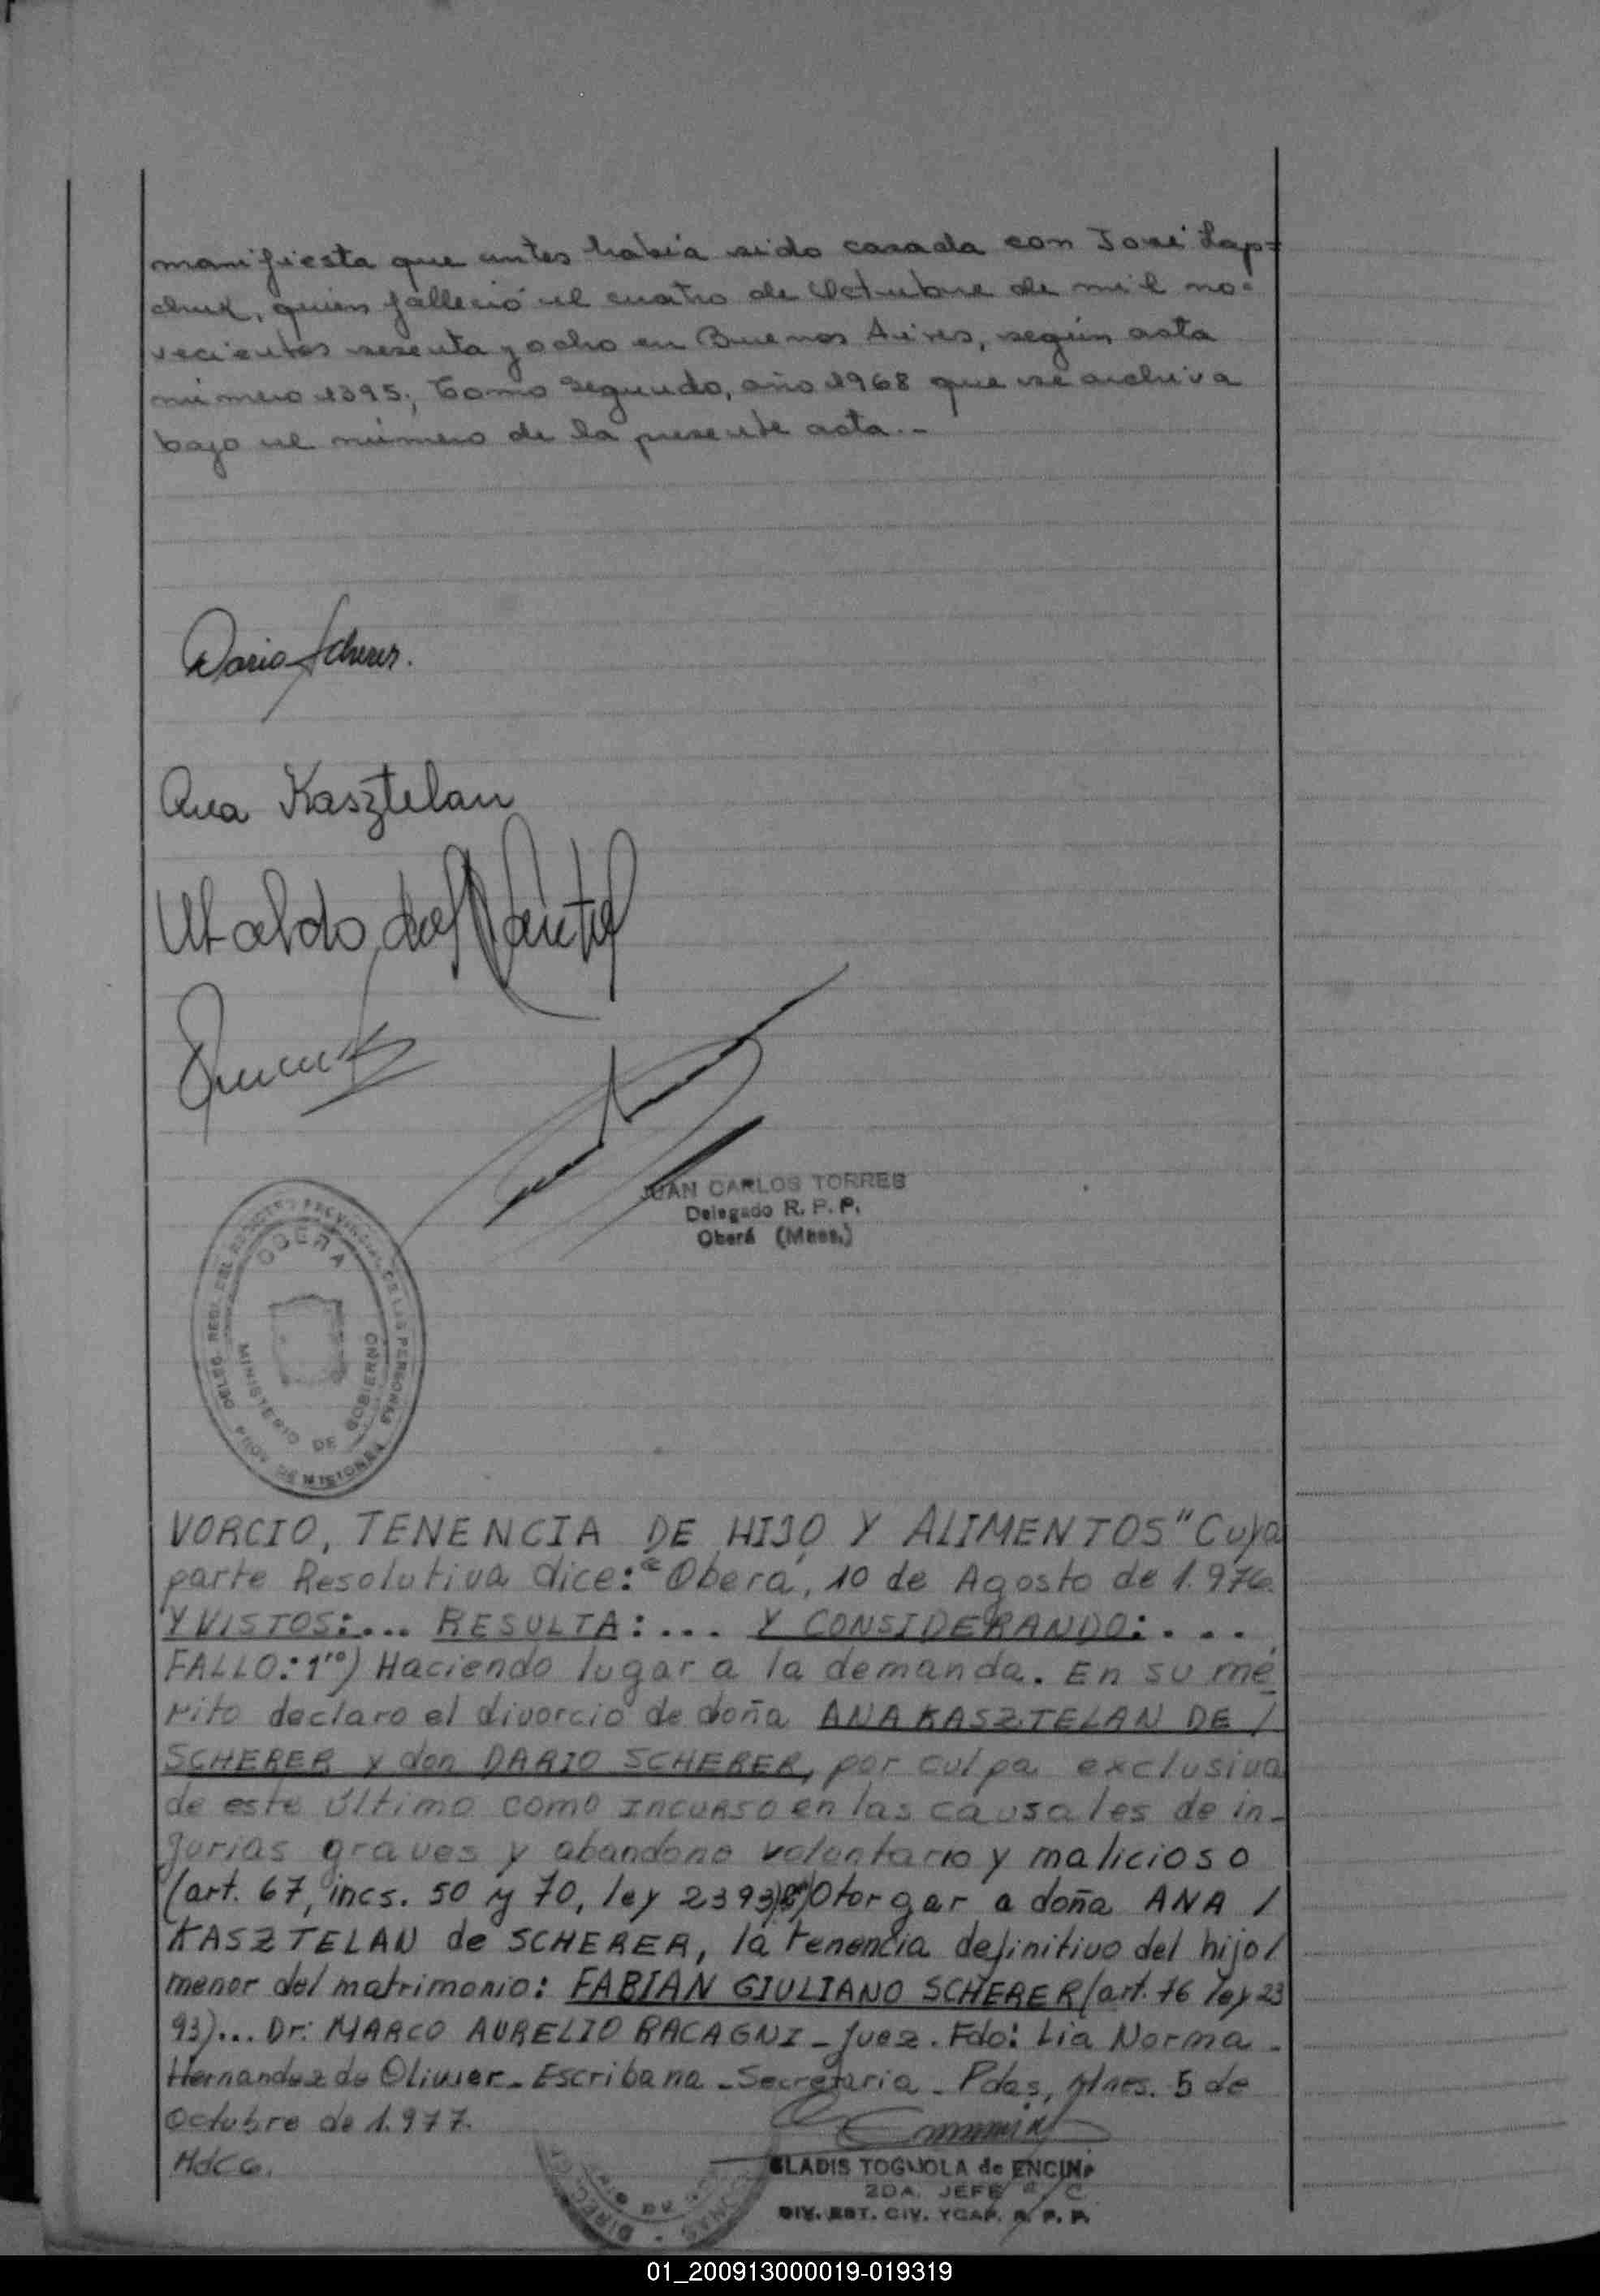 manifiesta que antes había sido casada con José Lap=
chuk, quien falleció el cuatro de Octubre de mil no=
vecientos sesenta y ocho en Buenos Aires, según acta
número 1395, Tomo Segundo, año 1968 que se archiva
bajo el número de la presente acta.-
Dario Scherer.
Ana Kasztelan
Ubaldo
JUAN CARLOS TORRES
Delegado R. P. P.
Oberá (Mnes.)
DELEG. REG. DEL REGISTRO PROVINCIAL DE LAS PERSONAS
OBERA
MINISTERIO DE GOBIERNO
PROV. DE MISIONES
VORCIO, TENENCIA DE HIJO Y ALIMENTOS" Cuya
parte Resolutiva dice: "Oberá, 10 de Agosto de 1.976.
Y VISTOS:... RESULTA:... Y CONSIDERANDO:...
FALLO: 1ro) Haciendo lugar a la demanda. En su mé
rito declaro el divorcio de doña ANA KASZTELAN DE /
SCHERER y don DARIO SCHERER, por culpa exclusiva
de este último como incurso en las causales de in-
jurias graves y abandono voluntario y malicioso
(art. 67, incs. 50 y 70, ley 2393) Otorgar a doña ANA /
KASZTELAN de SCHERER, la tenencia definitivo del hijo/
menor del matrimonio: FABIAN GIULIANO SCHERER (art. 76 ley 23
93)... Dr: MARCO AURELIO RACAGNI - Juez. Fdo: Lia Norma -
Hernandez de Olivier - Escribana - Secretaria - Pdas, Mnes. 5 de
Octubre de 1.977.
MdCG.
GLADIS TOGNOLA de ENCINA
2DA. JEFE
DIV. EST. CIV. YCAP. R. P. P.
01_200913000019-019319